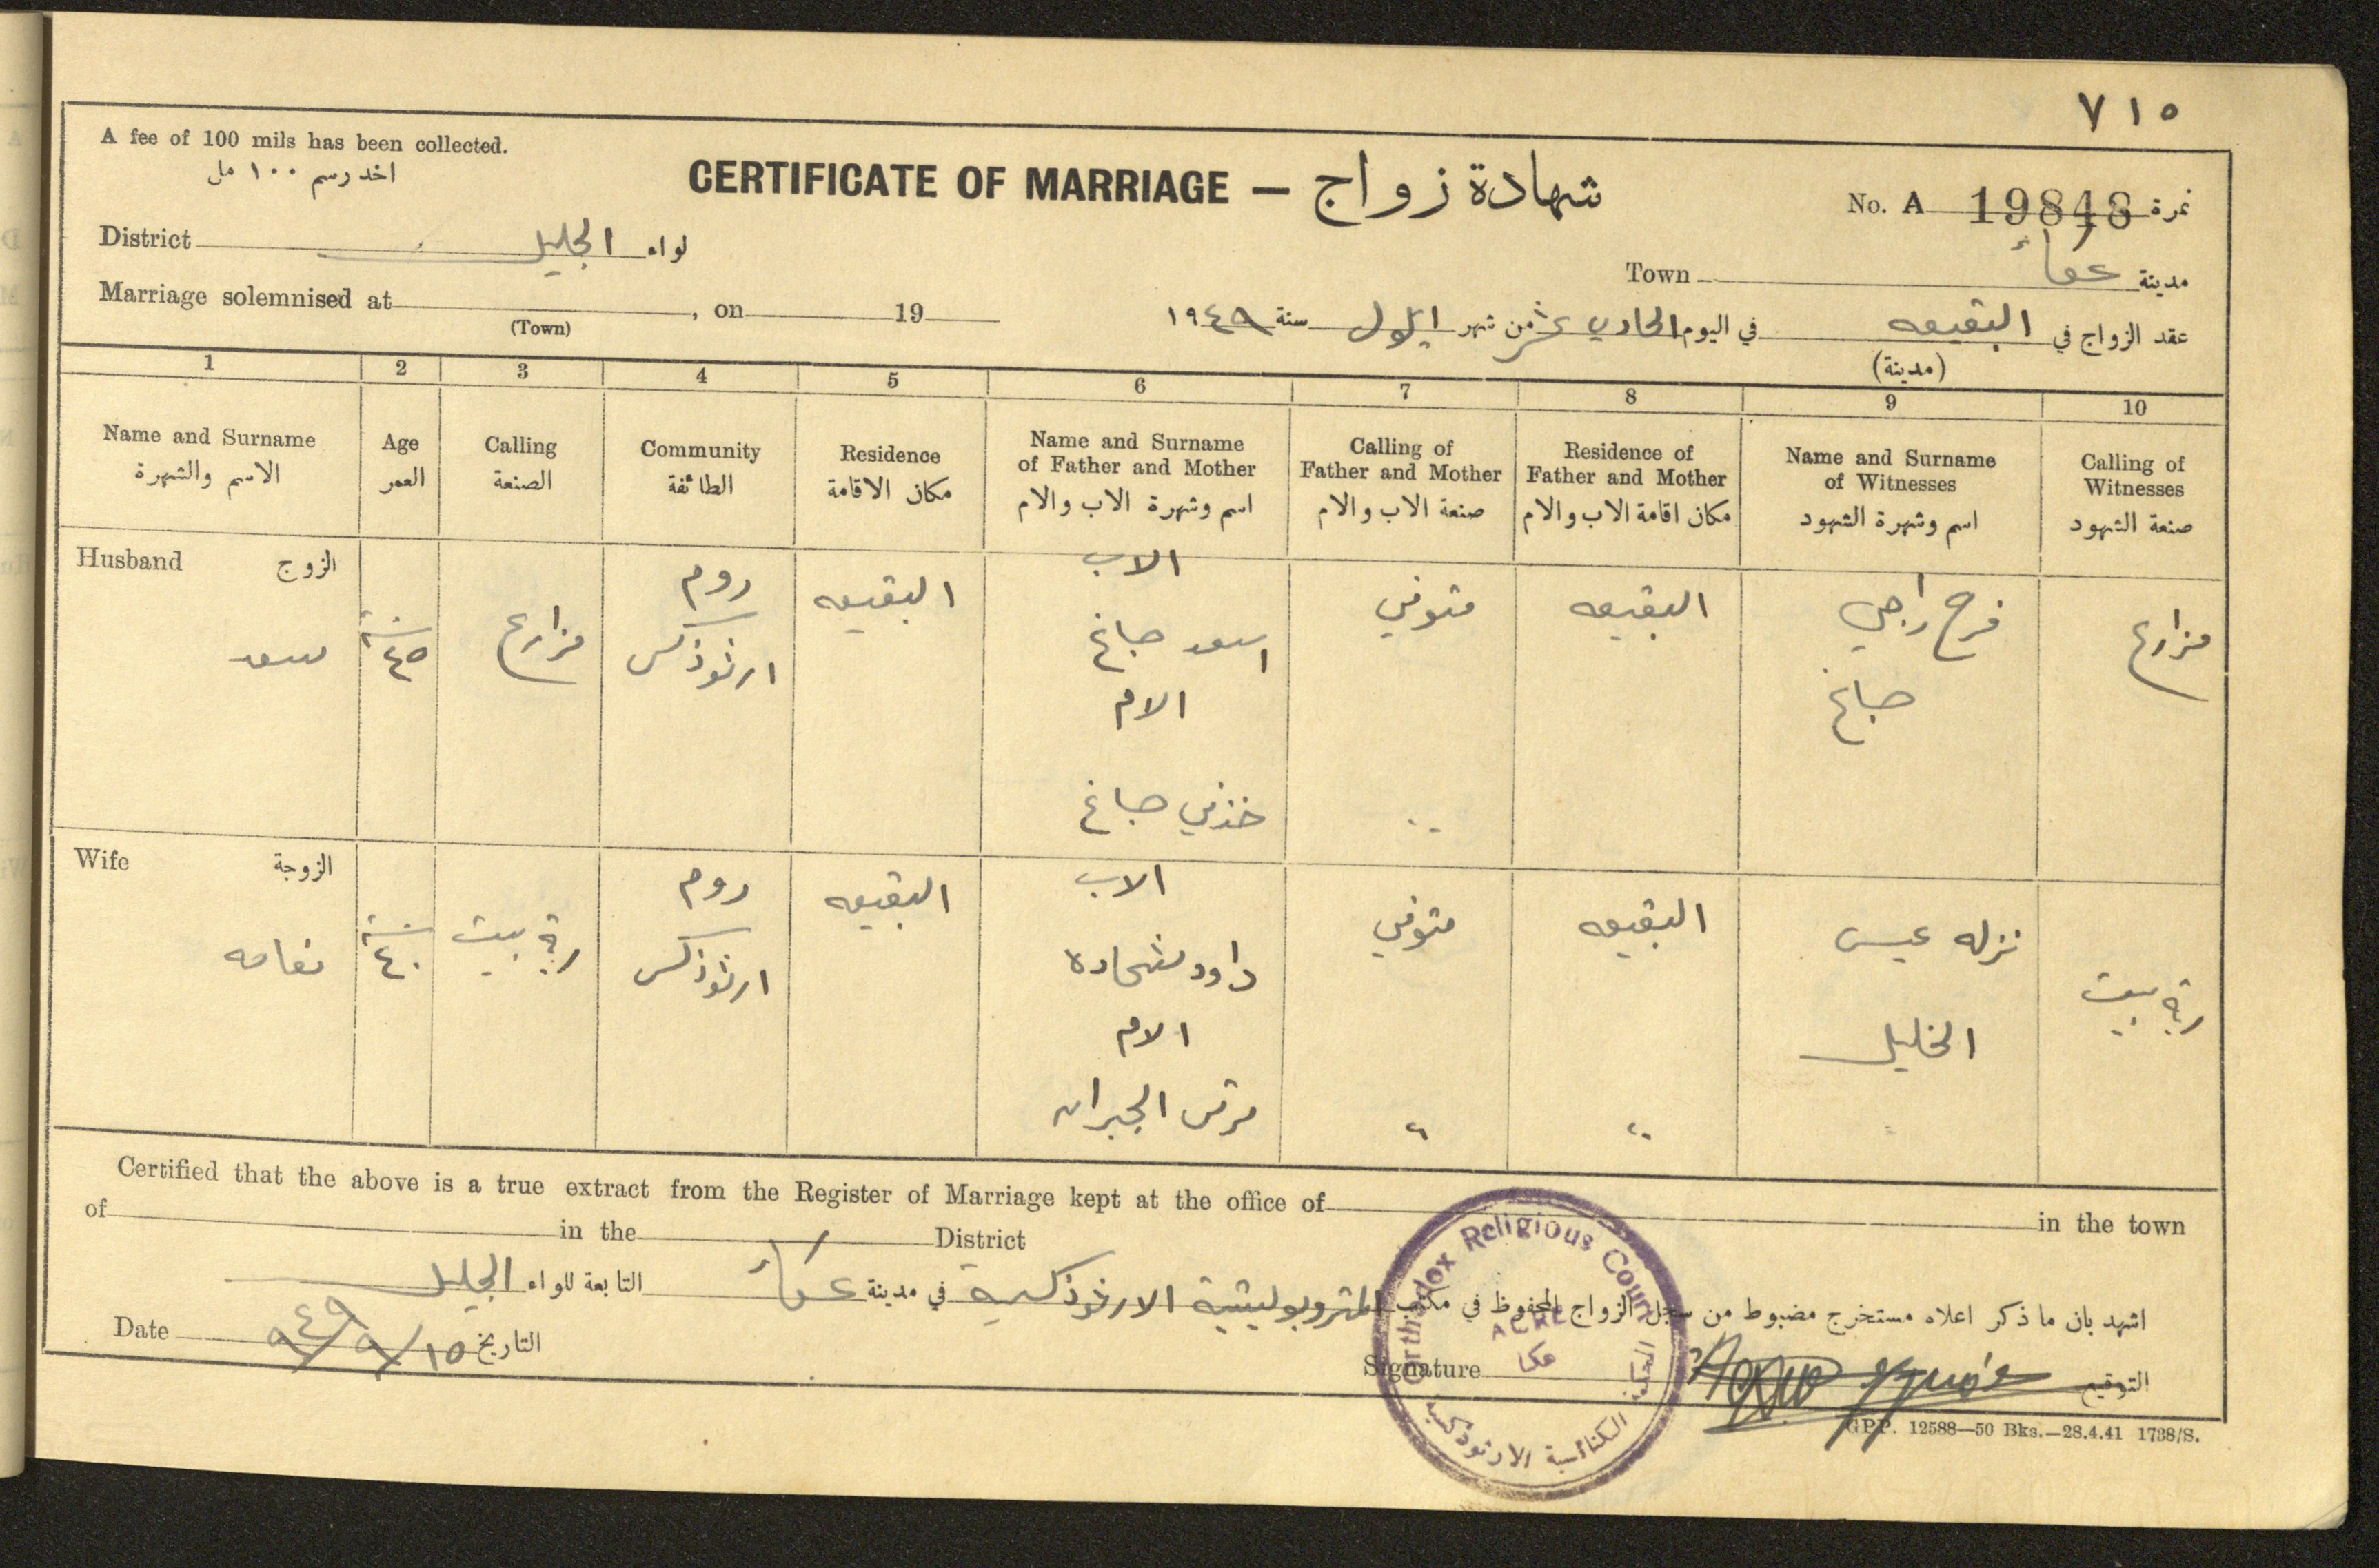 ٧١٥
A fee of 100 mils has been collected.
اخذ رسم ١٠٠ مل
CERTIFICATE OF MARRIAGE — شهادة زواج
No. A 19848 نمرة
District الجليل لواء
Town عكاء مدينة
Marriage solemnised at , on 19
(Town)
عقد الزواج في البقيعه في اليوم الحادي عشر من شهر ايلول سنة ١٩٤٩
(مدينة)
1 2 3 4 5 6 7 8 9 10
Name and Surname
الاسم والشهرة
Age
العمر
Calling
الصنعة
Community
الطائفة
Residence
مكان الاقامة
Name and Surname
of Father and Mother
اسم وشهرة الاب والام
Calling of
Father and Mother
صنعة الاب والام
Residence of
Father and Mother
مكان اقامة الاب والام
Name and Surname
of Witnesses
اسم وشهرة الشهود
Calling of
Witnesses
صنعة الشهود
Husband الزوج
سعد
٤٥ سنة
مزارع
روم
ارثوذكس
البقيعه
الاب
اسعد صباغ
الام
صباغ
متوفي
البقيعه
فرح راجي
صباغ
مزارع
Wife الزوجة
نعامه
٤٠ سنة
ربة بيت
روم
ارثوذكس
البقيعه
الاب
داود شحاده
الام
الجبران
متوفي
"
البقيعه
"
نزله عيسى
الخليل
ربة بيت
Certified that the above is a true extract from the Register of Marriage kept at the office of in the town
of in the District
اشهد بان ما ذكر اعلاه مستخرج مضبوط من سجل الزواج المحفوظ في مكتب المتروبوليتية الارثوذكسية في مدينة عكاء التابعة للواء الجليل
Date ١٥/٩/٩٤٩ التاريخ
Signature التوقيع
Orthodox Religious Court
ACRE
عكا
المحكمة الكنائسية الارثوذكسية
GPP. 12588—50 Bks.—28.4.41 1738/S.